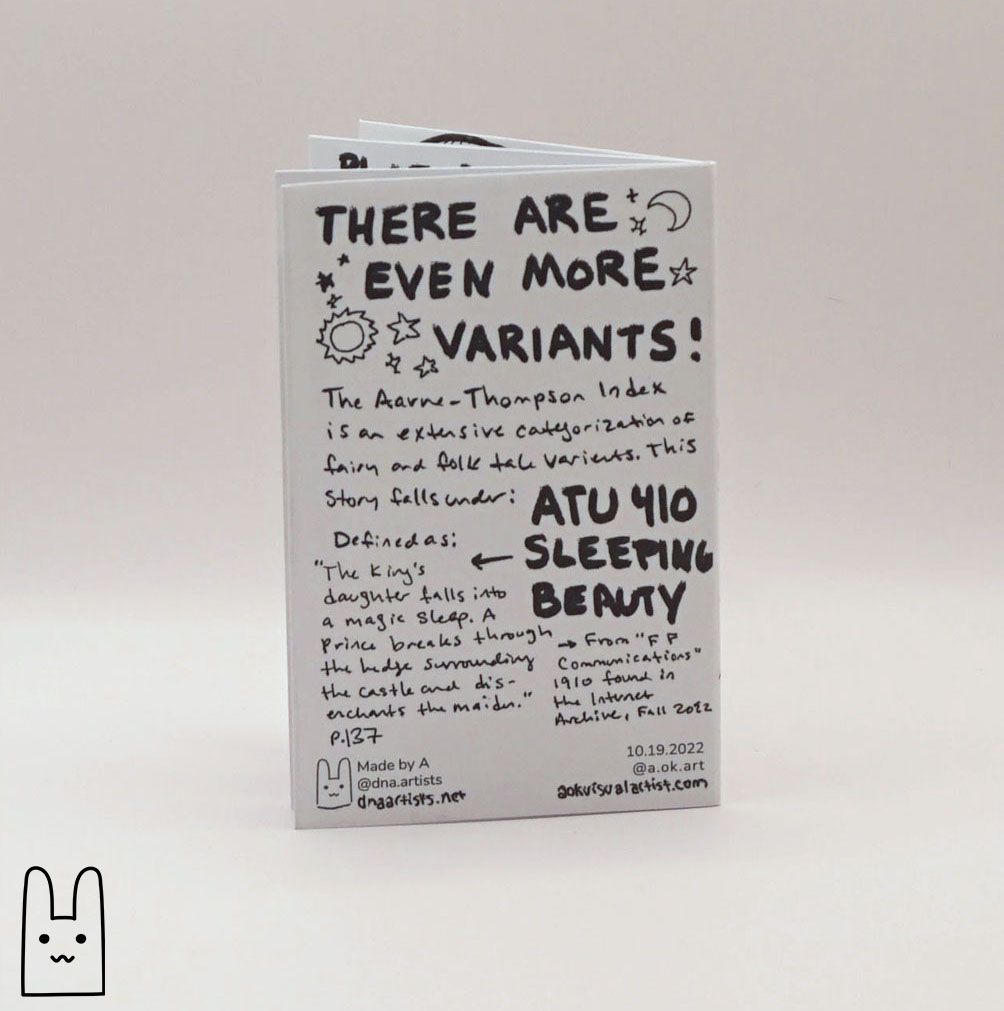 THERE ARE
EVEN MORE
VARIANTS!
The Aarne-Thompson Index
is an extensive categorization of
fairy and folk tale varients. This
story falls under:
ATU 410
SLEEPING
BEAUTY
Defined as:
"The King's
daughter falls into
a magic sleep. A
prince breaks through
the hedge surrounding
the castle and dis-
enchants the maiden."
p.137
→ From "F F
Communications"
1910 found in
the Internet
Archive, Fall 2022
Made by A
@dna.artists
dnaartists.net
10.19.2022
@a.ok.art
aokvisualartist.com